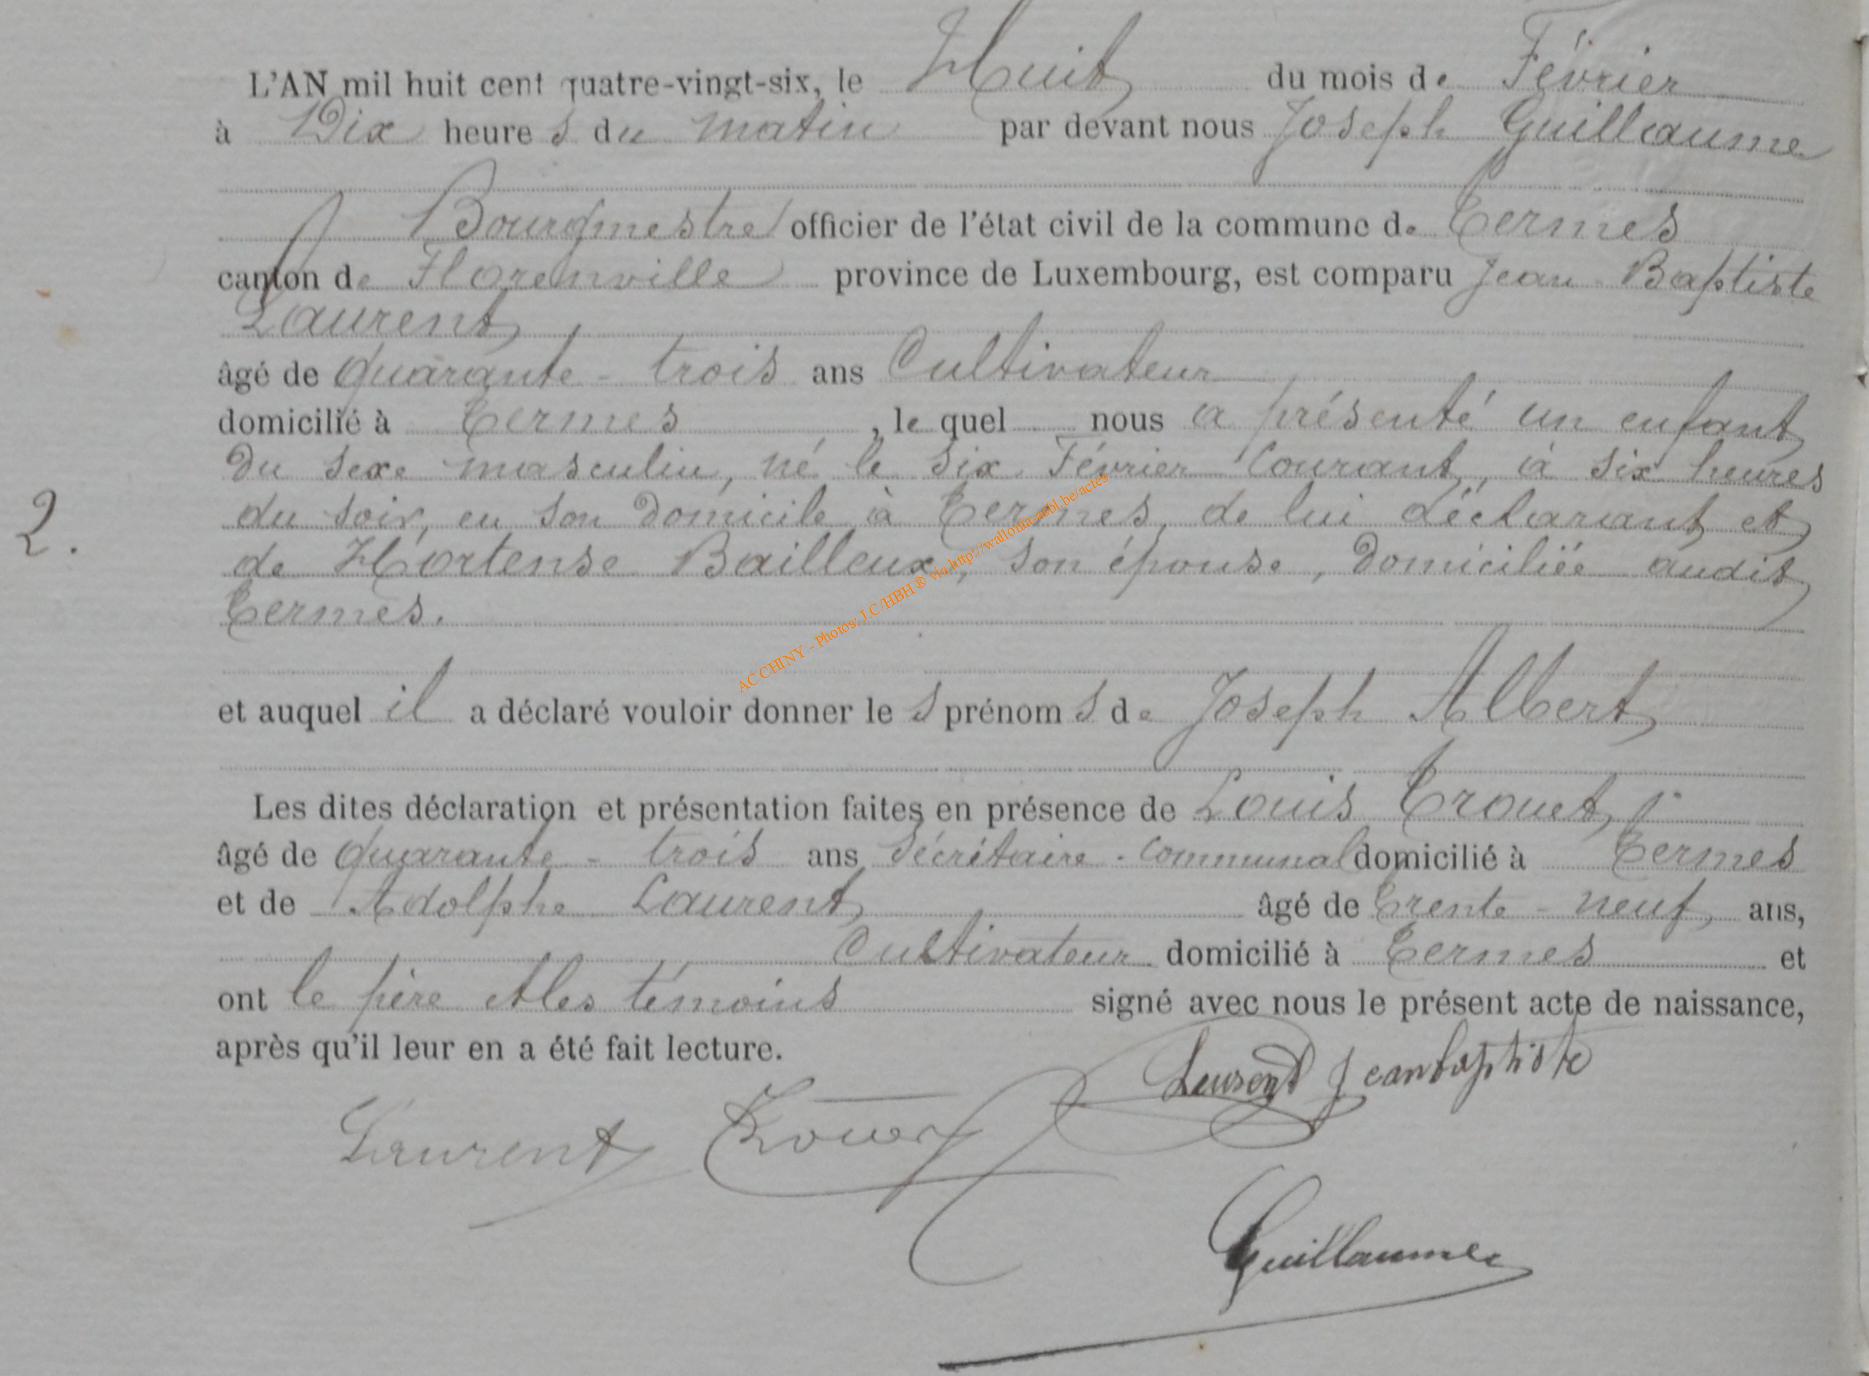 L'AN mil huit cent quatre-vingt-six, le Huit du mois de Février
à Dix heures du matin par devant nous Joseph Guillaume
Bourgmestre officier de l'état civil de la commune de Termes
canton de Florenville province de Luxembourg, est comparu Jean Baptiste
Laurent,
âgé de quarante-trois ans Cultivateur
domicilié à Termes, le quel nous a présenté un enfant
du sexe masculin, né le six Février courant, à six heures
du soir, en son domicile à Termes, de lui déclarant et
2. de Hortense Bailleux, son épouse, domiciliée audit
Termes.
et auquel il a déclaré vouloir donner les prénoms de Joseph Albert
Les dites déclaration et présentation faites en présence de Louis Trouet,
âgé de quarante-trois ans, Sécrétaire-communal domicilié à Termes
et de Adolphe Laurent, âgé de trente-neuf, ans,
Cultivateur domicilié à Termes et
ont le père et les témoins signé avec nous le présent acte de naissance,
après qu'il leur en a été fait lecture.
Laurent Jeanbaptiste
Laurent
Guillaume
AC CHINY - Photos: J.C/HBH® via http://wallonia.asbl.be/actes